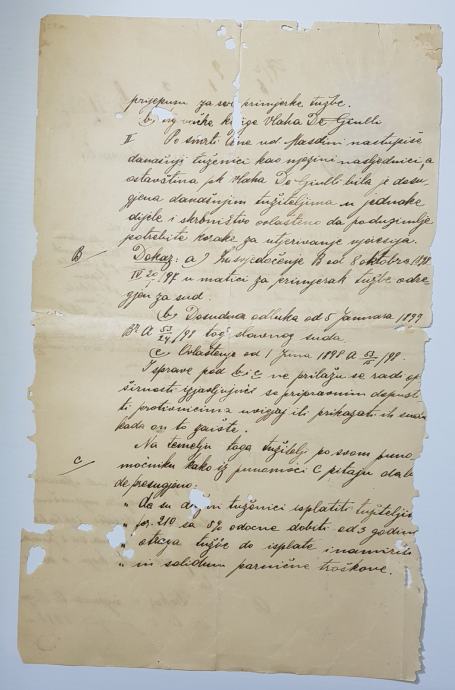 prijepisu za sve primjerke tužbe.
b, iz knjige Vlaha De Giulli
II Po smrti Ane ud. Masdini nastupiše
današnji tuženici kao njezini nasljednici a
ostavština pk Vlaha De Giulli bila je dosu-
gjena današnjim tužiteljima u jednake
dijele i skrbništvo ovlašteno da poduzimlje
potrebite korake za utjerivanje
B Dokaz: a, Svjedočenje B od 8 oktobra 1898
IV 20/97 u matici za primjerak tužbe odre-
gjen za sud.
b, Dosudna odluka od 5 Januara 1899
Br. A 53/98 tog slavnog suda
c, Ovlaštenje od 1 Juna 1898 A 53/98.
Isprave pod b i c ne prilažu se radi op-
širnosti izjavljujući se pripravnim dopusti-
ti protivnicima uvigjaj ili prikazati ih sudu
kada on to zaište.
Na temelju toga tužitelji po svom puno-
C moćniku kako iz punomoći C pitaju da bude
presugjeno:
" da su dužni tuženici isplatiti tužiteljim
" for. 210 sa 5% odocne dobiti od 3 godine
" tužbe do isplate i namiriti
" in solidum parnične troškove.